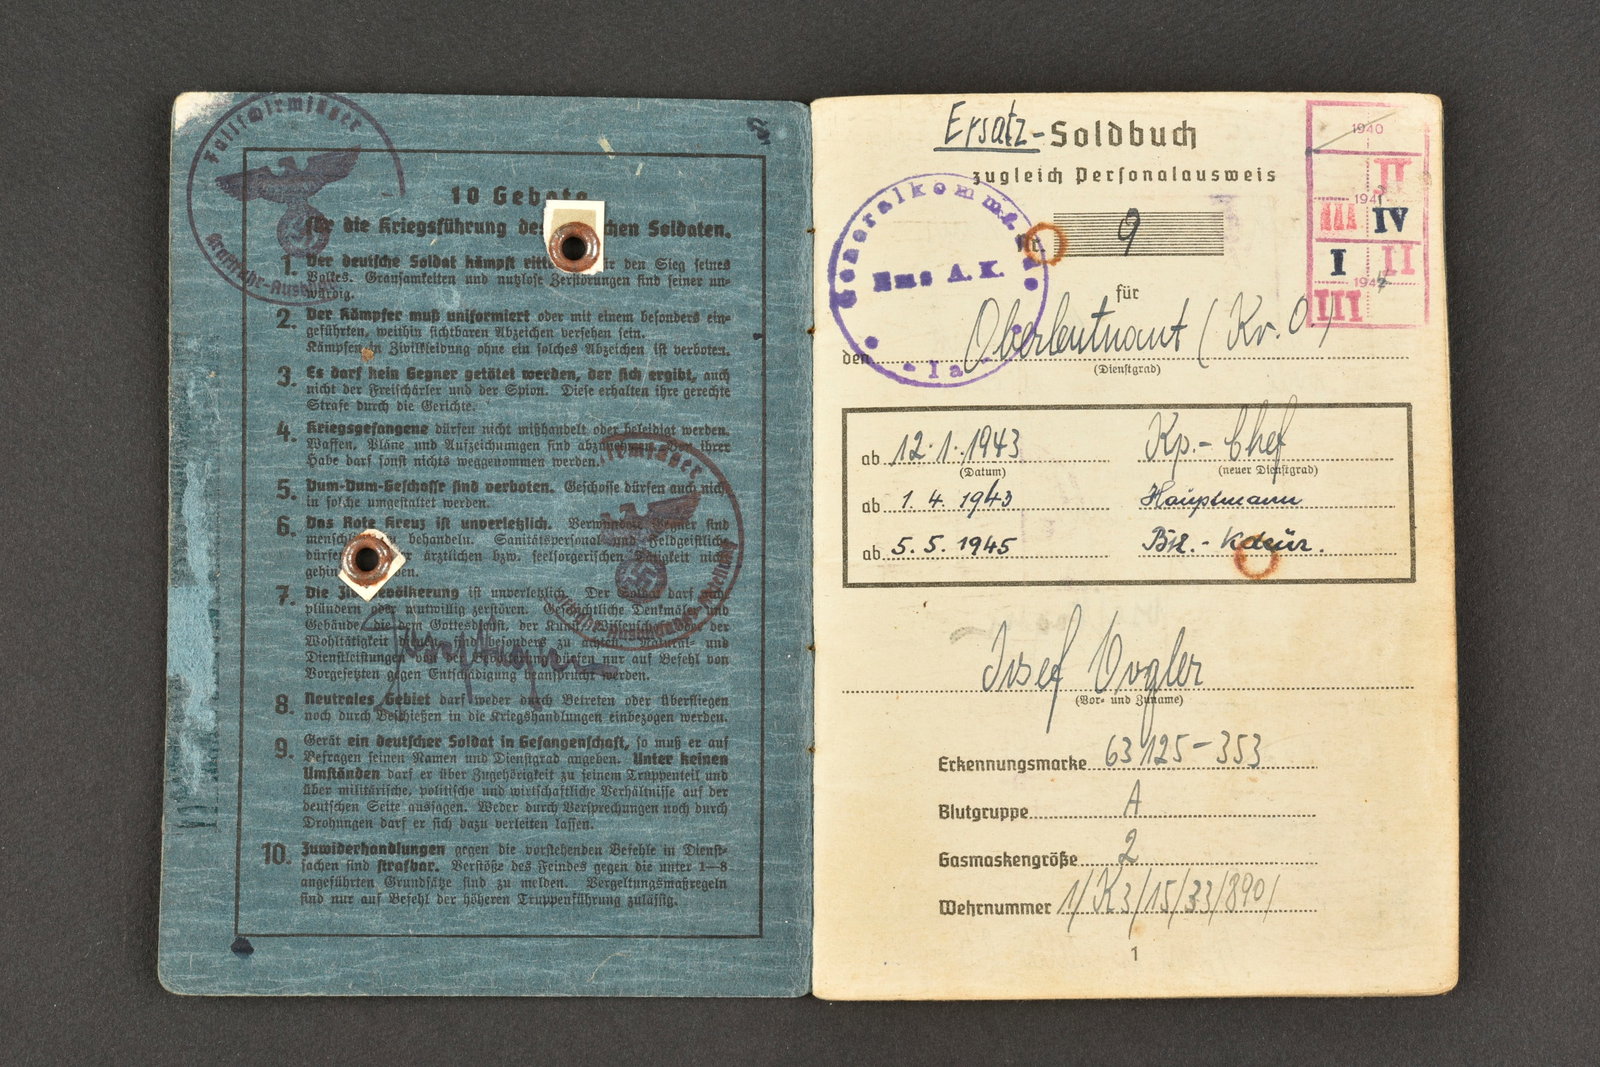 Fallschirmjäger
10 Gebote
für die Kriegsführung des chen Soldaten.
1. Der deutsche Soldat kämpft ritt r den Sieg seines
Volkes. Grausamkeiten und nutzlose Zerstörungen sind seiner un-
würdig.
2. Der Kämpfer muß uniformiert oder mit einem besonders ein-
geführten, weithin sichtbaren Abzeichen versehen sein.
Kämpfen in Zivilkleidung ohne ein solches Abzeichen ist verboten.
3. Es darf kein Gegner getötet werden, der sich ergibt, auch
nicht der Freischärler und der Spion. Diese erhalten ihre gerechte
Strafe durch die Gerichte.
4. Kriegsgefangene dürfen nicht mißhandelt oder beleidigt werden.
Waffen, Pläne und Aufzeichnungen sind abzunehmen. Von ihrer
Habe darf sonst nichts weggenommen werden.
5. Dum-Dum-Geschosse sind verboten. Geschosse dürfen auch nicht
in solche umgestaltet werden.
6. Das Rote Kreuz ist unverletzlich. Verwundete Gegner sind
menschlich zu behandeln. Sanitätspersonal und Feldgeistliche
dürfen ärztlichen bzw. seelsorgerischen Tätigkeit nicht
gehin den.
7. Die Zivilbevölkerung ist unverletzlich. Der Soldat darf nicht
plündern oder mutwillig zerstören. Geschichtliche Denkmäler und
Gebäude, die dem Gottesdienst, der Kunst, Wissenschaft oder der
Wohltätigkeit dienen, sind besonders zu achten. Natural- und
Dienstleistungen von der Bevölkerung dürfen nur auf Befehl von
Vorgesetzten gegen Entschädigung beansprucht werden.
8. Neutrales Gebiet darf weder durch Betreten oder Überfliegen
noch durch Beschießen in die Kriegshandlungen einbezogen werden.
9. Gerät ein deutscher Soldat in Gefangenschaft, so muß er auf
Befragen seinen Namen und Dienstgrad angeben. Unter keinen
Umständen darf er über Zugehörigkeit zu seinem Truppenteil und
über militärische, politische und wirtschaftliche Verhältnisse auf der
deutschen Seite aussagen. Weder durch Versprechungen noch durch
Drohungen darf er sich dazu verleiten lassen.
10. Zuwiderhandlungen gegen die vorstehenden Befehle in Dienst-
sachen sind strafbar. Verstöße des Feindes gegen die unter 1—8
angeführten Grundsätze sind zu melden. Vergeltungsmaßregeln
sind nur auf Befehl der höheren Truppenführung zulässig.
Ersatz-Soldbuch
zugleich Personalausweis
Generalkommando
Ems A.K.
- Ia -
Nr. 9
1940
II
1941
III IV
I II
1942
III
für
den Oberleutnant (Kr. O.)
(Dienstgrad)
ab 12.1.1943 Kp.-Chef
(Datum) (neuer Dienstgrad)
ab 1.4.1943 Hauptmann
ab 5.5.1945 Btl.-Kdeur.
Josef Vogler
(Vor- und Zuname)
Erkennungsmarke 63125-353
Blutgruppe A
Gasmaskengröße 2
Wehrnummer 1/K3/15/33/890/
1